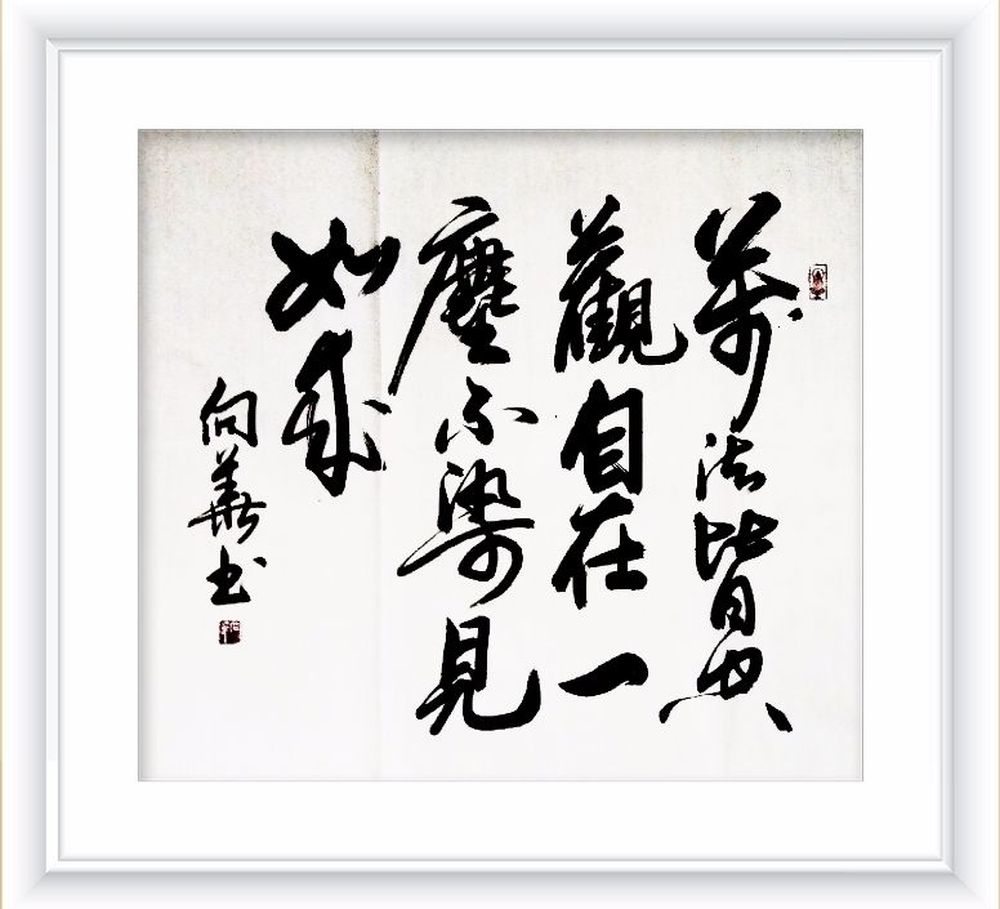 萬法皆
觀自在一
塵不染見
如來
向華书